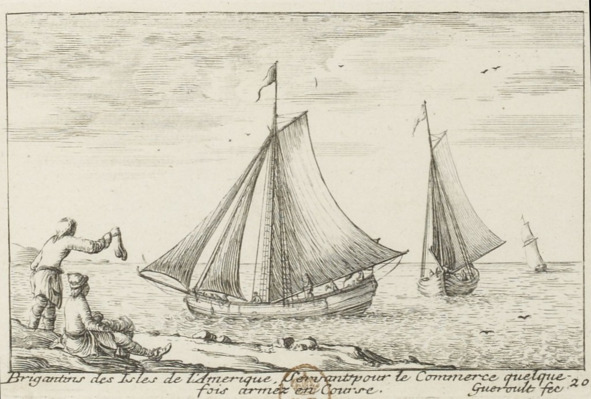 Brigantins des Isles de l'Amerique, Servant pour le Commerce quelque-
fois armez en Course. Gueroult fec 20